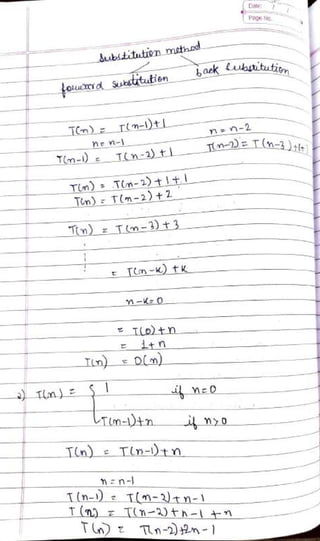 Date: / /
Page No.
Substitution method
forward substitution back substitution
T(n) = T(n-1)+1
n = n-1 n = n-2
T(n-1) = T(n-2)+1 T(n-2) = T(n-3)+1+
T(n) = T(n-2)+1+1
T(n) = T(n-2)+2
T(n) = T(n-3)+3
= T(n-k)+k
n-k=0
= T(0)+n
= 1+n
T(n) = O(n)
2) T(n) = { 1 if n=0
T(n-1)+n if n>0
T(n) = T(n-1)+n
n = n-1
T(n-1) = T(n-2)+n-1
T(n) = T(n-2)+n-1+n
T(n) = T(n-2)+2n-1